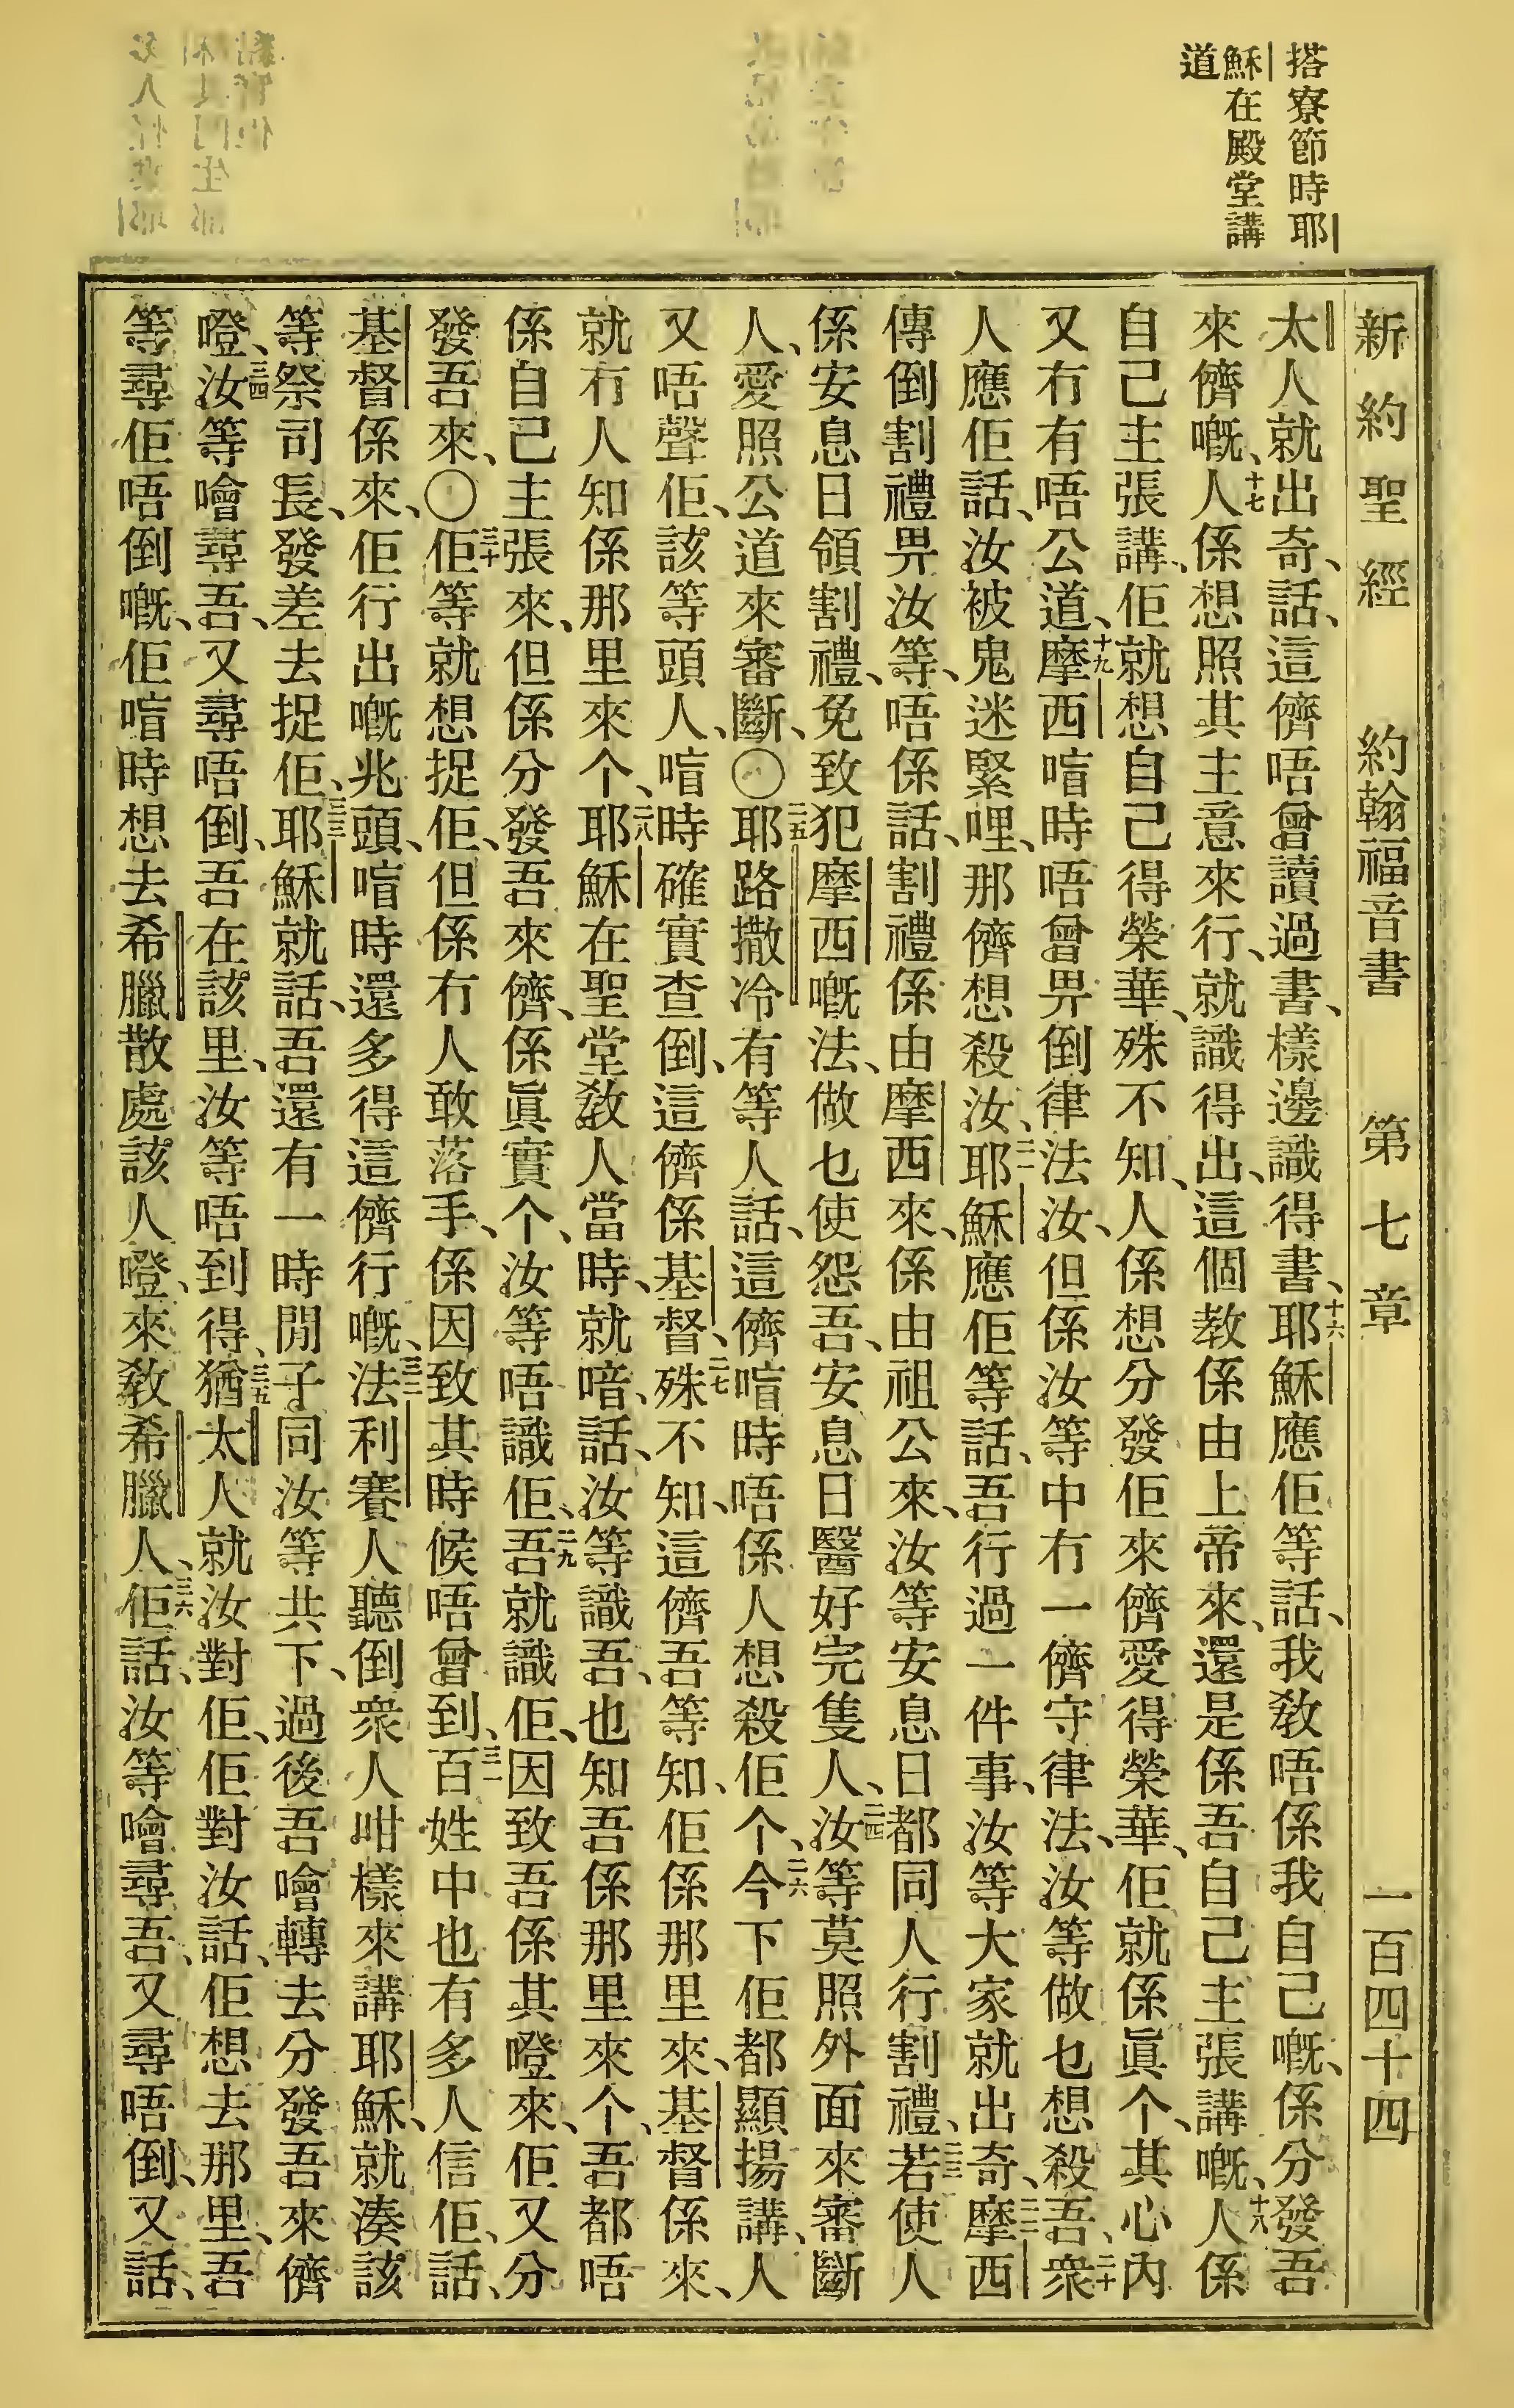 搭寮節時耶
穌在殿堂講
道
新約聖經 約翰福音書 第七章 一百四十四
太人就出奇、話、這儕唔曾讀過書、樣邊識得書、十六耶穌應佢等話、我教唔係我自己嘅、係分發吾
來儕嘅、十七人係想照其主意來行、就識得出、這個教係由上帝來、還是係吾自己主張講嘅、十八人係
自己主張講、佢就想自己得榮華、殊不知、人係想分發佢來儕愛得榮華、佢就係眞个、其心內
又冇有唔公道、十九摩西喧時唔曾畀倒律法汝、但係汝等中冇一儕守律法、汝等做乜想殺吾、二十衆
人應佢話、汝被鬼迷緊哩、那儕想殺汝、二一耶穌應佢等話、吾行過一件事、汝等大家就出奇、二二摩西
傳倒割禮畀汝等、唔係話、割禮係由摩西來、係由祖公來、汝等安息日都同人行割禮、二三若使人
係安息日領割禮、免致犯摩西嘅法、做乜使怨吾、安息日醫好完隻人、二四汝等莫照外面來審斷
人、愛照公道來審斷、〇二五耶路撒冷有等人話、這儕喧時唔係人想殺佢个、二六今下佢都顯揚講、人
又唔聲佢、該等頭人、喧時確實查倒、這儕係基督、二七殊不知、這儕吾等知、佢係那里來、基督係來、
就冇人知係那里來个、二八耶穌在聖堂教人當時、就喑、話、汝等識吾、也知吾係那里來个、吾都唔
係自己主張來、但係分發吾來儕、係眞實个、汝等唔識佢、二九吾就識佢、因致吾係其嶝來、佢又分
發吾來、〇三十佢等就想捉佢、但係冇人敢落手、係因致其時候唔曾到、三一百姓中也有多人信佢、話、
基督係來、佢行出嘅兆頭、喧時還多得這儕行嘅、三二法利賽人聽倒衆人咁樣來講耶穌、就湊該
等祭司長、發差去捉佢、三三耶穌就話、吾還有一時閒子同汝等共下、過後吾噲轉去分發吾來儕
嶝、三四汝等噲尋吾、又尋唔倒、吾在該里、汝等唔到得、三五猶太人就汝對佢、佢對汝話、佢想去那里、吾
等尋佢唔倒嘅、佢喧時想去希臘散處該人嶝、來教希臘人、三六佢話、汝等噲尋吾、又尋唔倒、又話、